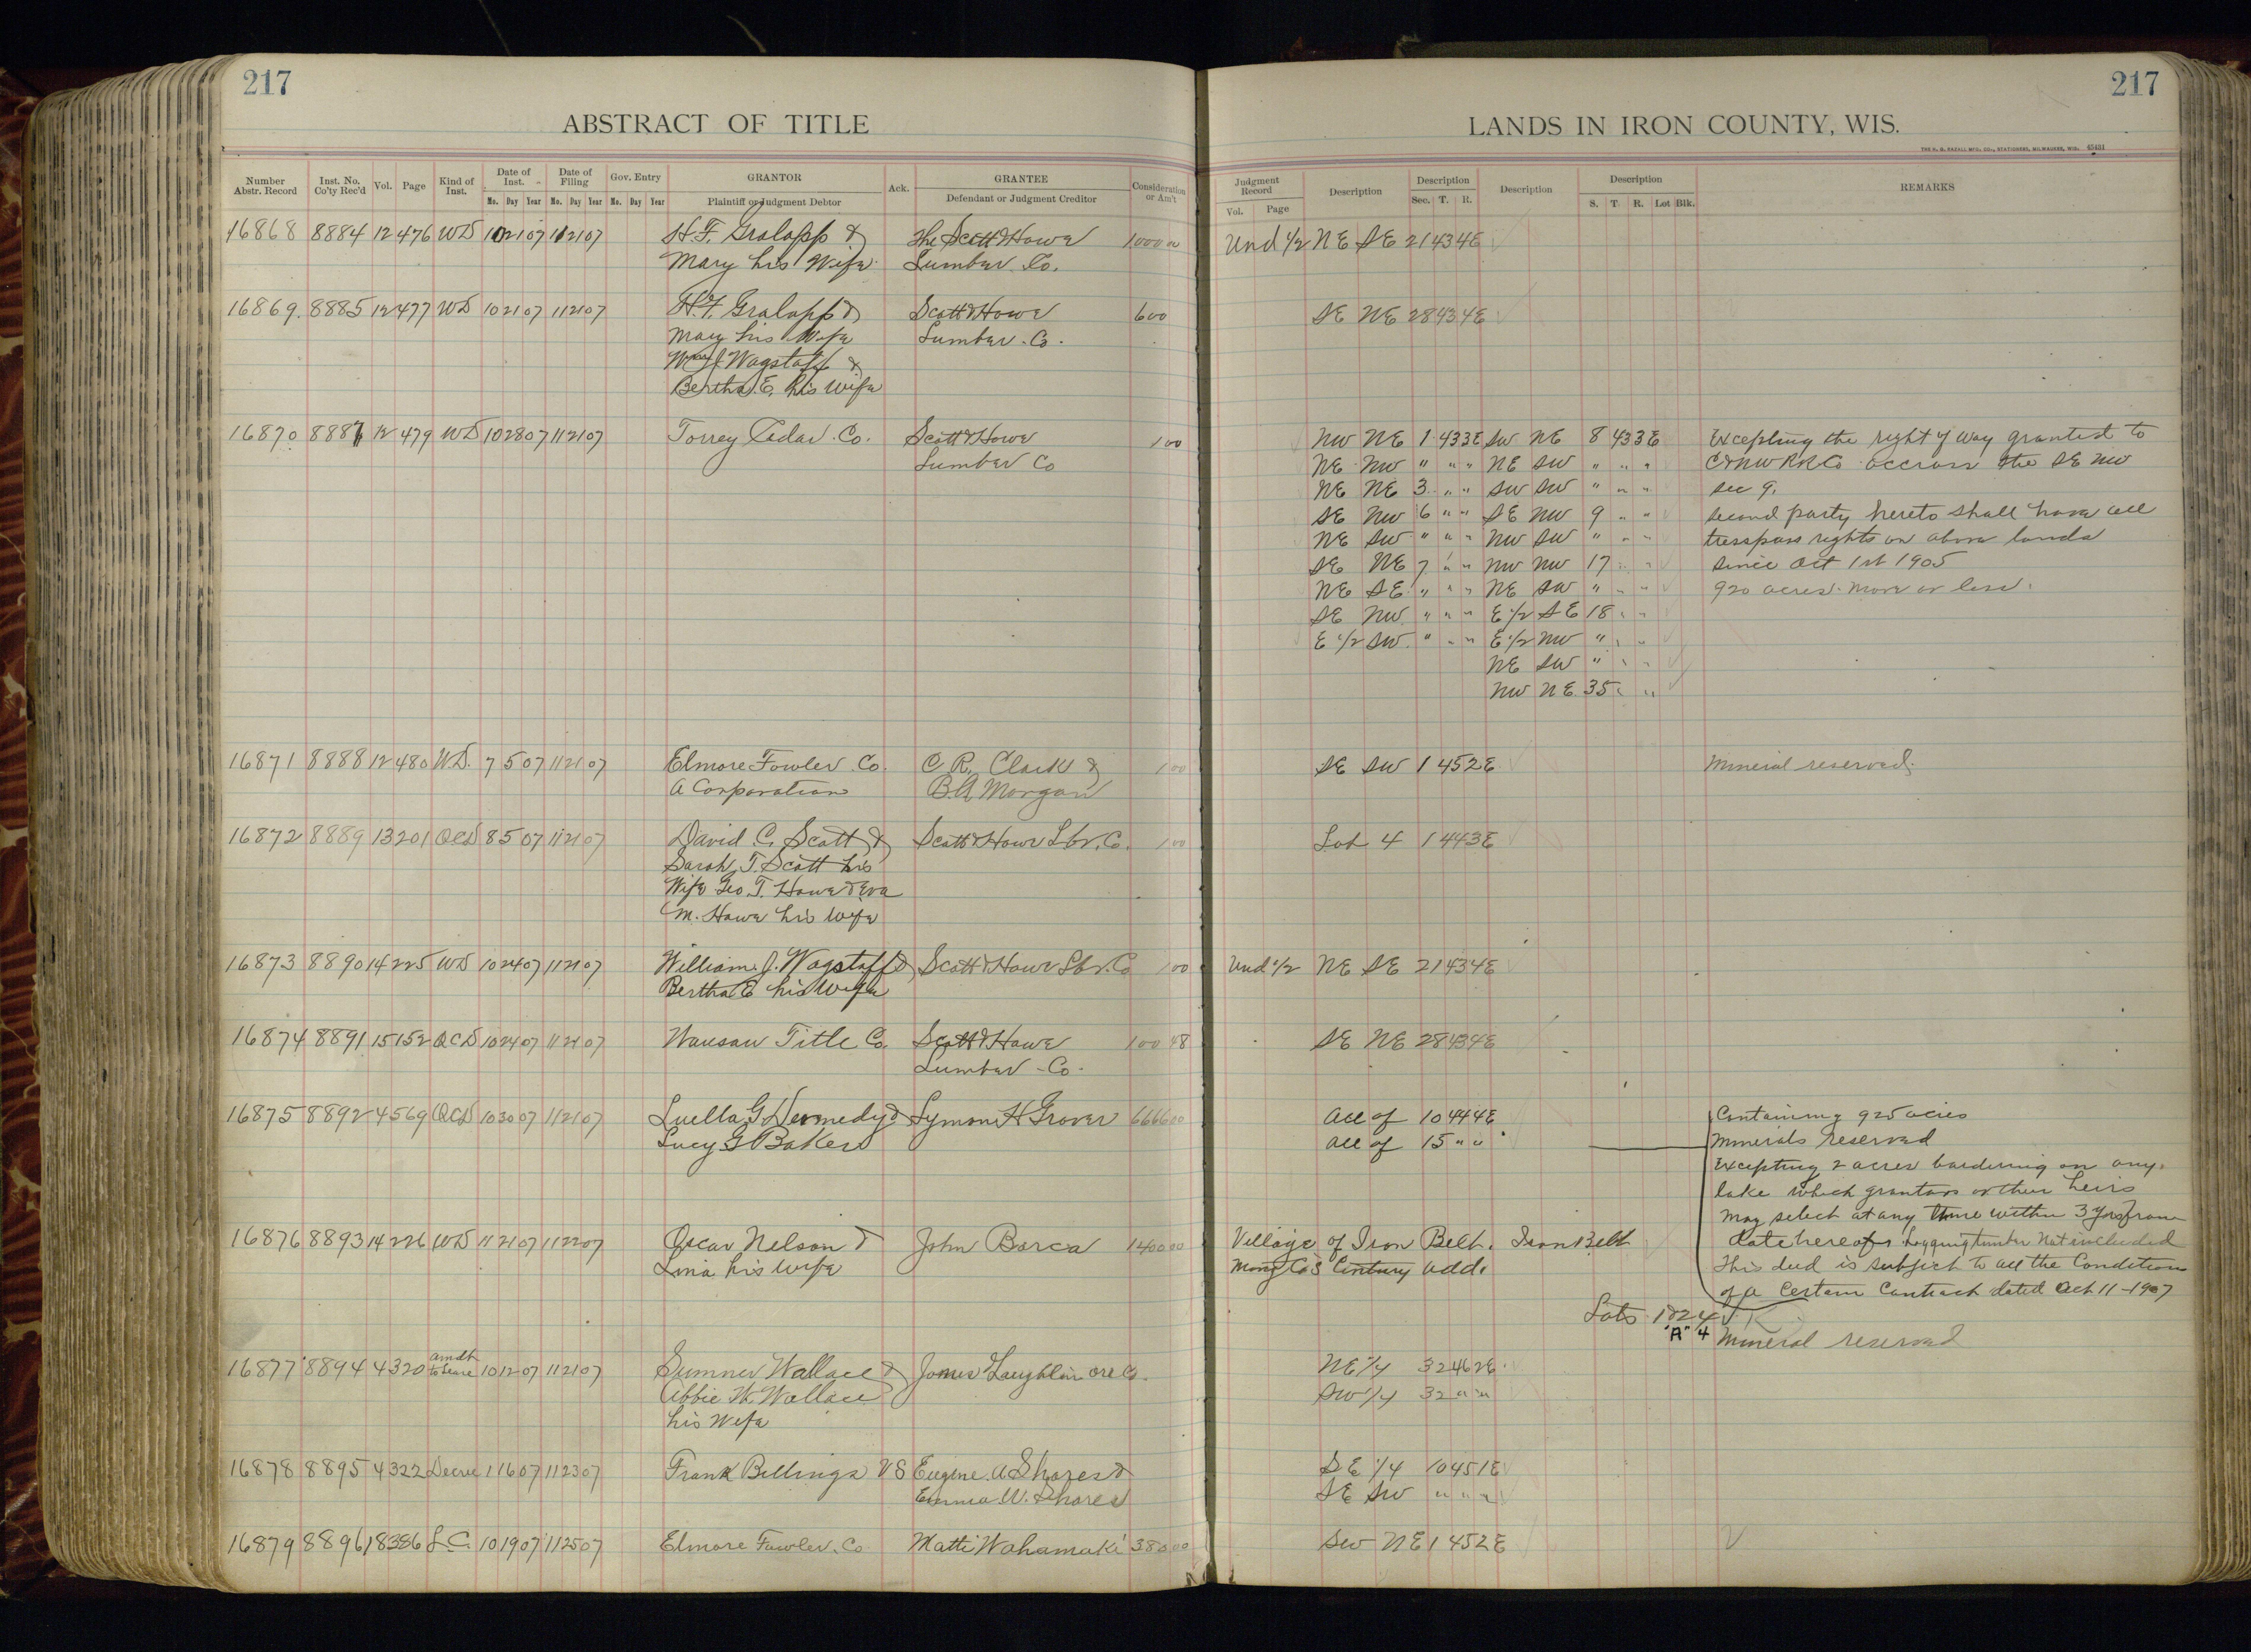 217
ABSTRACT OF TITLE
Number Abstr. Record Inst. No. Co'ty Rec'd Vol. Page Kind of Inst. Date of Inst. Date of Filing Gov. Entry GRANTOR Ack. GRANTEE Consideration or Am't
Mo. Day Year Mo. Day Year Mo. Day Year Plaintiff or Judgment Debtor Defendant or Judgment Creditor
16868 8884 12 476 WD 10 21 07 11 21 07 H. F. Gralapp & The Scott & Howe 1000 00
Mary his Wife Lumber Co.
16869 8885 12 477 WD 10 21 07 11 21 07 H. F. Gralapp & Scott & Howe 600
Mary his Wife Lumber Co.
Wm J Wagstaff &
Bertha E. his Wife
16870 8887 12 479 WD 10 28 07 11 21 07 Torrey Cedar Co. Scott & Howe 1 00
Lumber Co
16871 8888 12 480 W.D. 7 5 07 11 21 07 Elmore Fowler Co. C. R. Clark & 1 00
A Corporation B. A. Morgan
16872 8889 13 201 QCD 8 5 07 11 21 07 David C. Scott & Scott & Howe Lbr. Co. 1 00
Sarah T. Scott his
Wife Geo. T. Howe & Eva
M. Howe his Wife
16873 8890 14 225 WD 10 24 07 11 21 07 William J. Wagstaff & Scott & Howe Lbr. Co 1 00
Bertha E his Wife
16874 8891 15 152 QCD 10 24 07 11 21 07 Wausau Title Co. Scott & Howe 100 48
Lumber Co.
16875 8892 4 569 QCD 10 30 07 11 21 07 Luella G & Lyman H Grover 6666 00
Lucy G Baker
16876 8893 14 226 WD 11 21 07 11 22 07 Oscar Nelson & John Barca 1400 00
Lina his Wife
16877 8894 4 320 amdt to Lease 10 12 07 11 21 07 Sumner Wallace & Jones & Laughlin Ore Co.
Abbie W. Wallace
his Wife
16878 8895 4 322 Decree 11 6 07 11 23 07 Frank Billings VS Eugene A Shores &
Emma W. Shores
16879 8896 18 386 L.C. 10 19 07 11 25 07 Elmore Fowler Co Matti Wahamaki 380 00
217
LANDS IN IRON COUNTY, WIS.
Judgment Record Description Description Description Description REMARKS
Vol. Page Sec. T. R. S. T. R. Lot Blk.
Und 1/2 NE SE 21 43 4E
SE NE 28 43 4E
NW NE 1 43 3E SW NE 8 43 3E Excepting the right of way granted to
NE NW " " " NE SW " " " C & NW RR Co accross the SE NW
NE NE 3 " " SW SW " " " sec 9.
SE NW 6 " " SE NW 9 " " second party hereto shall have all
NE SW " " " NW SW " " " tresspass rights on above lands
SE NE 7 " " NW NW 17 " " since Oct 1st 1905
NE SE " " " NE SW " " " 920 acres more or less.
SE NW " " " E 1/2 SE 18 " "
E 1/2 SW " " " E 1/2 NW " " "
NE SW " " "
NW NE 35 " "
SE SW 1 45 2E Mineral reserved.
Lot 4 1 44 3E
Und 1/2 NE SE 21 43 4E
SE NE 28 43 4E
All of 10 44 4E Containing 925 acres
All of 15 " " Minerals reserved
Excepting 2 acres bordering on any
lake which grantors or their heirs
may select at any time within 3 yrs from
Village of Iron Belt. Iron Belt date hereof Logging timber Not included
Mong Co's Century add. This deed is subject to all the Conditions
of a Certain Contract dated Oct 11-1907
Lots 1 & 2 4
"A" 4 Mineral reserved
NE 1/4 32 46 2E
SW 1/4 32 " "
SE 1/4 10 45 1E
SE SW " " "
SW NE 1 45 2E